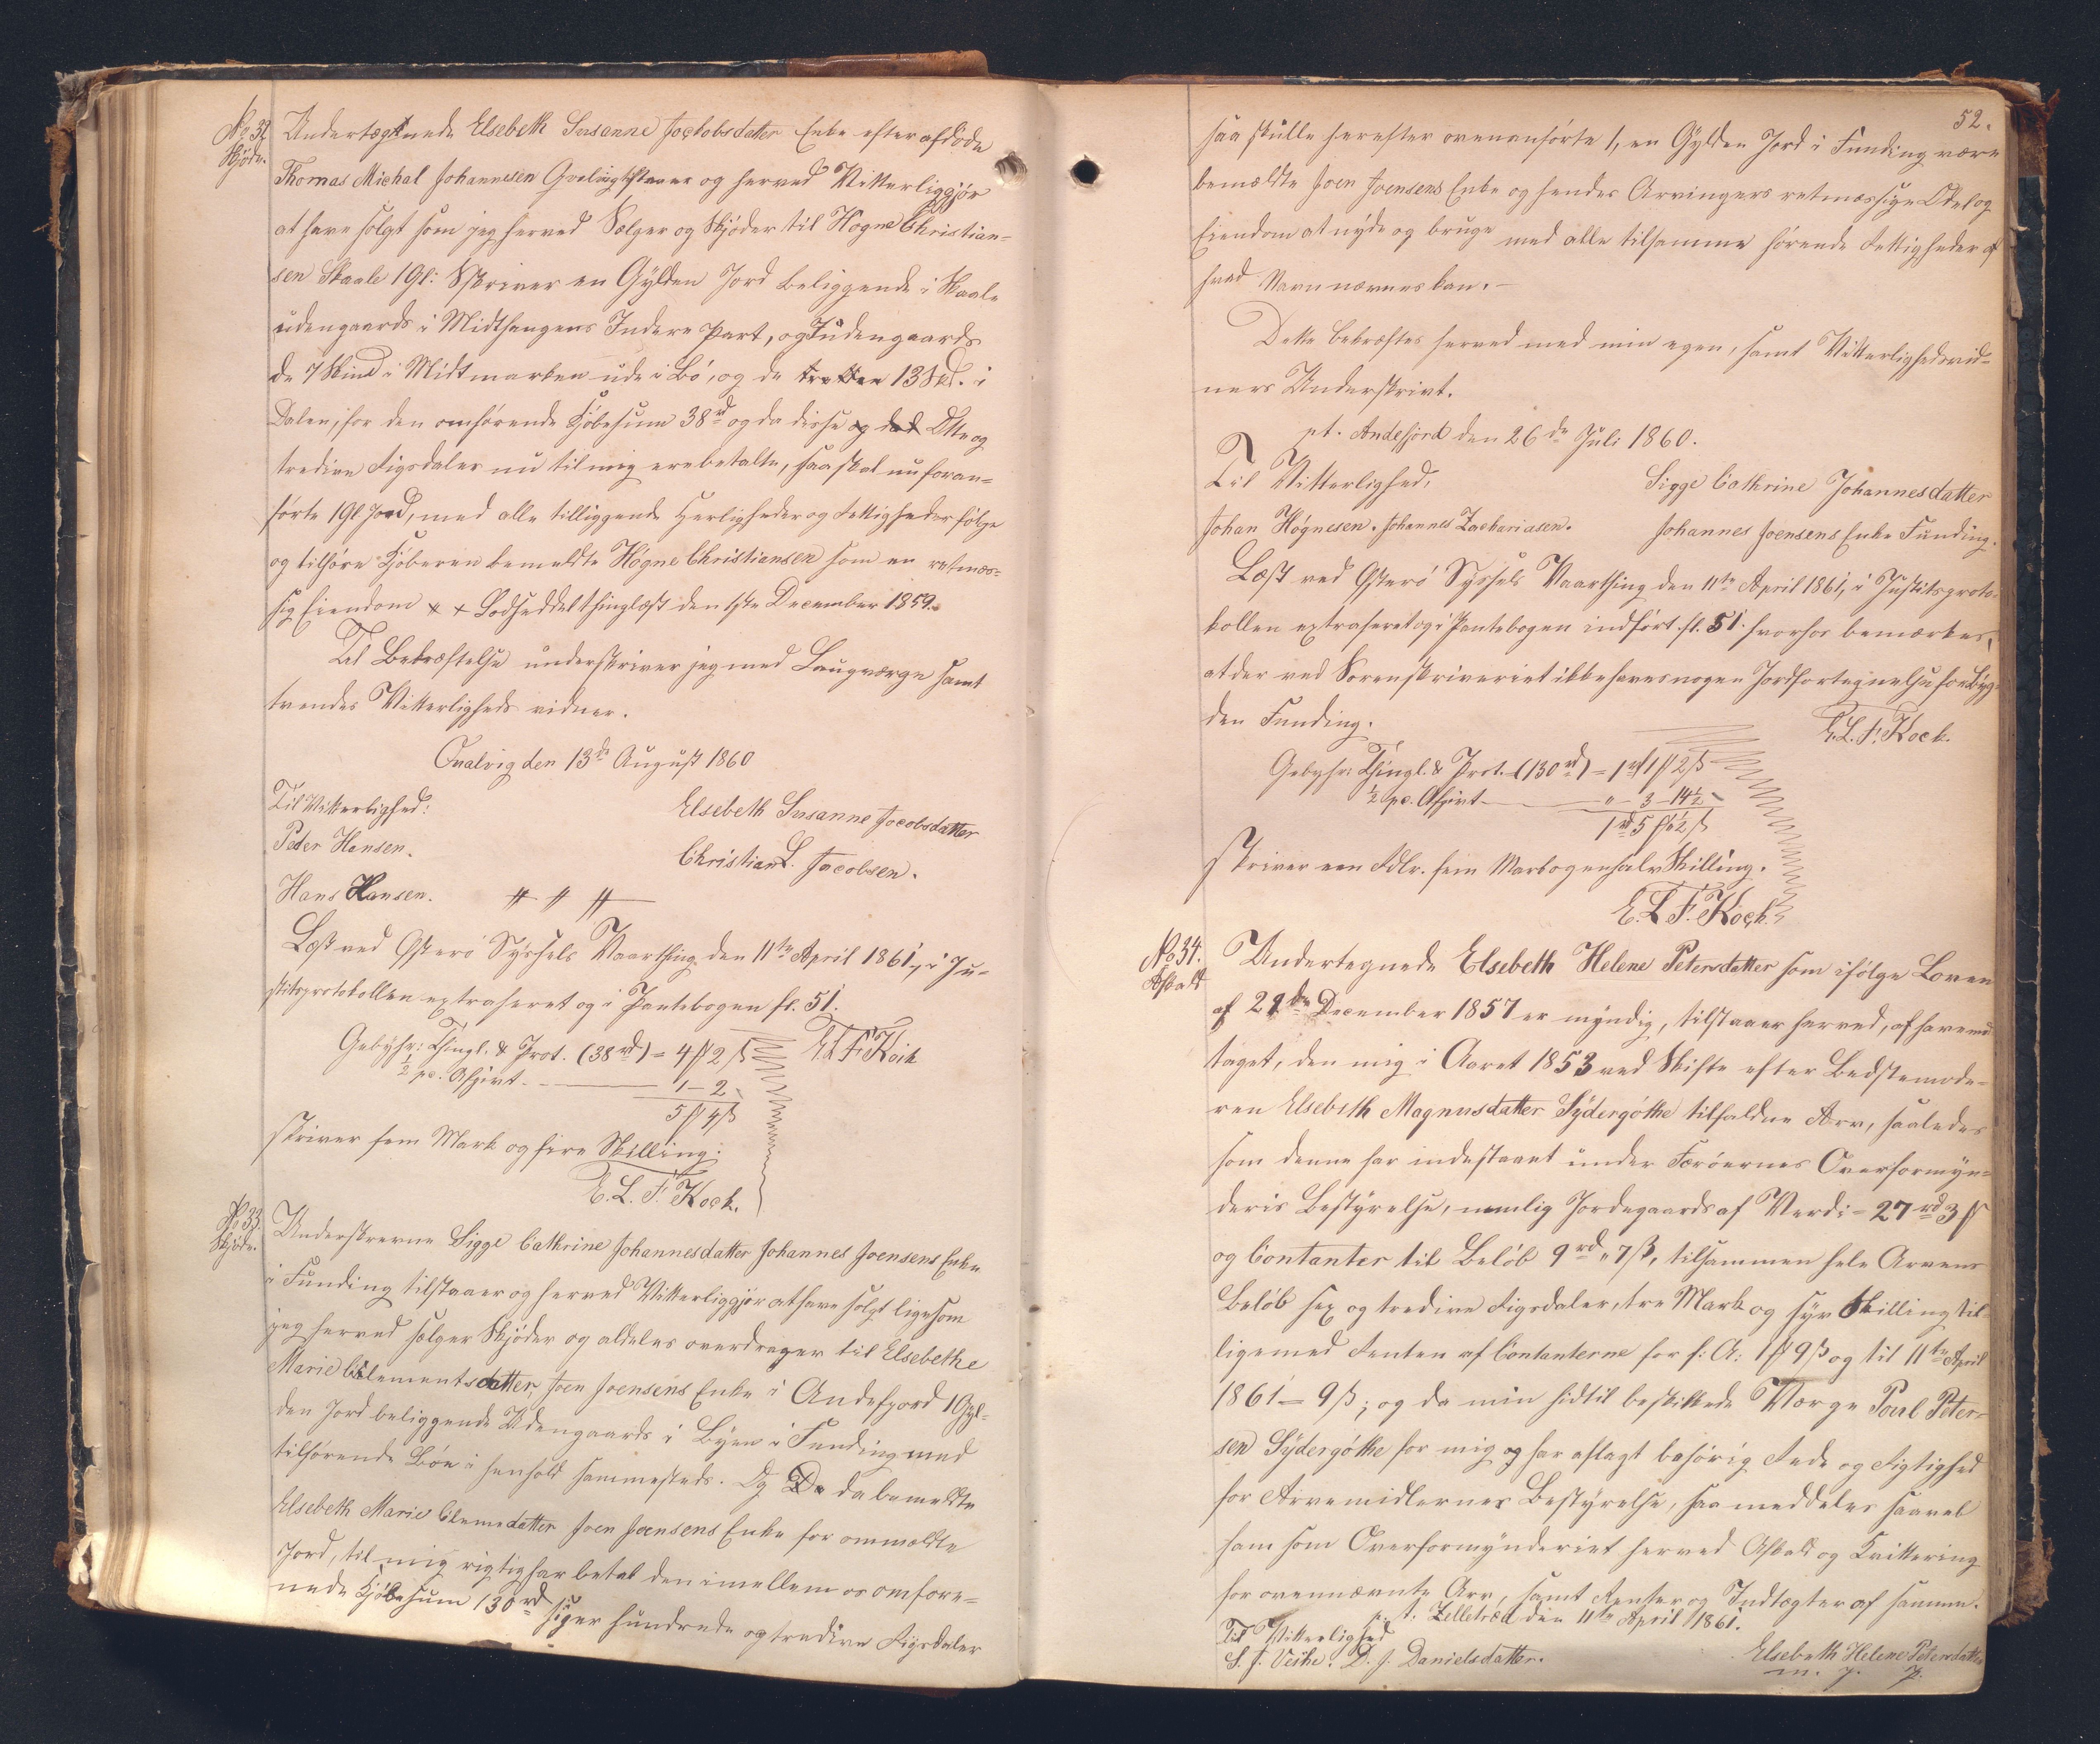 No 32. Undertegnede Elsebeth Susanne Jacobsdatter Enke efter afdøde
Skjøde. Thomas Michal Johannesen Qvalvig tilstaaer og herved Vitterliggjør
at have solgt som jeg herved Sælger og Skjøder til Høgne Christian-
sen Skaale 1 Gl: Skriver en Gylden Jord beliggende i Skaale
udengaards i Midthaugens Indere Part, og Indengaards
de 7 Skind i Midtmarken ude i Bø, og de tretten 13 Sk. i
Dalen, for den omhørende Kjøbesum 38rd og da disse og det Otte og
tredive Rigsdaler nu til mig ere betalte, saa skal nu foran-
førte 1 Gl. Jord, med alle tilliggende Herligheder og Rettigheder følge
og tilhøre Kjøberen bemeldte Høgne Christiansen som en retmæs-
sig Eiendom x x Lodseddel thinglæst den 1ste December 1859.
Til Bekræftelse underskriver jeg med Laugværge samt
trendes Vitterligheds vidner.
Qvalvig den 13de August 1860
Til Vitterlighed: Elsebeth Susanne Jacobsdatter
Peter Hansen. Christian L. Jacobsen.
Hans Hansen.
Læst ved Østerø Syssels Vaarthing den 11te April 1861, i Ju-
stitsprotokollen extraheret og i Pantebogen fl. 51.
Gebyhr: Thingl. & Prot. (38rd) = 4 ℳ 2 ß E L F Kock
½ pc. Afgivt. — 1 – 2
5 ℳ 4 ß
skriver fem Mark og fire Skilling:
E. L. F. Kock.
No 33. Underskrevne Sigge Cathrine Johannesdatter Johannes Joensens Enke
Skjøde. i Funding tilstaaer og herved Vitterliggjør at have solgt ligesom
jeg herved sælger Skjøder og aldeles overdrager til Elsebethe
Marie Clementsdatter, Joen Joensens Enke i Andefjord 1 Gyl-
den Jord beliggende Udengaards i Byen i Funding med
tilhørende Bøe i henhold sammesteds. Og Da da bemeldte
Elsebeth Marie Clemsdatter Joen Joensens Enke for ommeldte
Jord, til mig rigtig har betal den imellem os omfore-
nede Kjøbesum 130rd siger hundrede og tredive Rigsdaler
52.
saa skulle herefter ovenanførte 1, en Gylden Jord i Funding være
bemældte Joen Joensens Enke og hendes Arvingers retmæssige Odel og
Eiendom at nyde og bruge med alle tilsamme hørende Rettigheder af
hvad Navn nævnes kan. —
Dette bekræftes herved med min egen, samt Vitterlighedsvid-
ners Underskrivt.
pt. Andefjord den 26de Juli 1860.
Til Vitterlighed, Sigge Cathrine Johannesdatter
Johan Høgnesen. Johannes Zachariasen. Johannes Joensens Enke Funding.
Læst ved Østerø Syssels Vaarthing den 11te April 1861, i Justitsproto-
kollen extraheret og i Pantebogen indført fl. 51. hvorhos bemærkes,
at der ved Sorenskriveriet ikke haves nogen Jordfortegnelse for Byg-
den Funding. E. L. F. Kock.
Gebyhr: Thingl. & Prot. (130rd) = 1rd 1 ℳ 2 ß
½ pc. Afgivt — „ – 3 – 14½
1rd 5 ℳ ½ ß
skriver een Rdlr. fem Mark og en halv Skilling.
E. L. F. Kock.
No 34. Undertegnede Elsebeth Helene Petersdatter som ifølge Loven
Afkald af 29de December 1857 er myndig, tilstaaer herved, at have mod
taget, den mig i Aaret 1853 ved Skifte efter Bedstemode-
ren Elsebeth Magnusdatter Sydergøthe tilfaldne Arv, saaledes
som denne har indestaaet under Færøernes Overformyn-
deris Bestyrelse, nemlig Jordegaards af Verdi = 27rd 3 ℳ
og Contanter til Beløb 9rd „ 7 ß, tilsammen hele Arvens
Beløb sex og tredive Rigsdaler, tre Mark og syv Skilling til-
ligemed Renten af Contanterne for f: A: 1 ℳ 9 ß og til 11te April
1861 = 9 ß; og da min hidtil beskikkede Værge Poul Peter-
sen Sydergøthe for mig og har aflagt behørig Rede og Rigtighed
for Arvemidlernes Bestyrelse, saa meddeles saavel
ham som Overformynderiet herved Afkald og Kvittering
for ovennævnte Arv, samt Renter og Indtægter af samme.
p. t. Zelletræd den 11te April 1861.
Til Vitterlighed
S. J. Veihe. D. J. Danielsdatter. Elsebeth Helene Petersdatter
m. f. P.